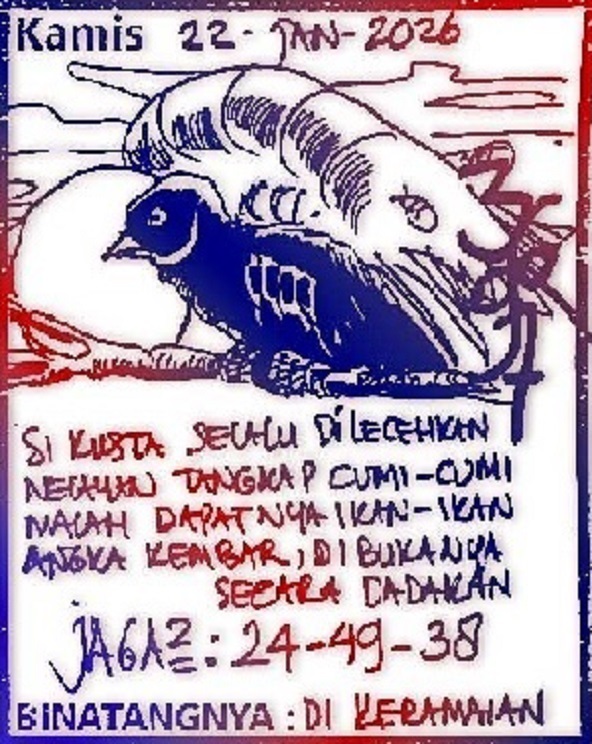 Kamis 22-JAN-2026
SI KUSTA SELALU DILECEHKAN
NELAYAN TANGKAP CUMI-CUMI
MALAH DAPATNYA IKAN-IKAN
ANGKA KEMBAR, DIBUKANYA
SECARA DADAKAN
JAGA2 : 24-49-38
BINATANGNYA : DI KERAMAIAN